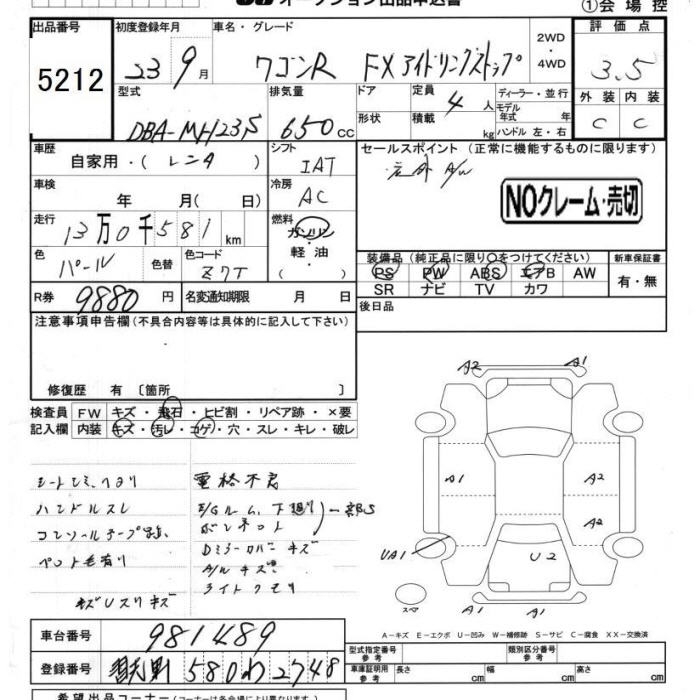 オークション出品申込書
①会場控
出品番号 初度登録年月 車名・グレード 評価点
5212 23 9月 ワゴンR FX アイドリングストップ 2WD ・ 4WD 3.5
型式 排気量 ドア 定員 4人 ディーラー・並行 外装 内装
DBA-MH23S 650cc 形状 積載 kg モデル年式 年 C C
ハンドル 左・右
車歴 シフト セールスポイント (正常に機能するものに限ります)
自家用・( レンタ ) IAT A/W
車検 冷房
年 月( 日) AC NOクレーム・売切
走行 燃料
13万0千581km ガソリン・軽油 ( )
色 色替 色コード 装備品(純正品に限り○をつけてください) 新車保証書
パール Z7T PS PW ABS エアB AW 有・無
R券 9880円 名変通知期限 月 日 SR ナビ TV カワ
注意事項申告欄(不具合内容等は具体的に記入して下さい) 後日品
修復歴 有 〔箇所 〕
検査員 FW キズ・飛石・ヒビ割・リペア跡・×要
記入欄 内装 キズ・汚レ・コゲ・穴・スレ・キレ・破レ
A2 A1
電格不良
ハンドルスレ E/Gルーム、下廻り 一部S
ボンネット
A1 A2
A2
ペット毛有り DミラーカバーキズS
A/Wキズ
ライトクモリ
UA1 U2
キズUスリキズ
スペア A1 A1
A－キズ E－エクボ U－凹み W－補修跡 S－サビ C－腐食 XX－交換済
車台番号 981489
型式指定番号 参考 類別区分番号 参考
登録番号 580 わ 2748
車庫証明用 参考 長さ cm 幅 cm 高さ cm
希望出品コーナー(コーナーは各会場により異なります)